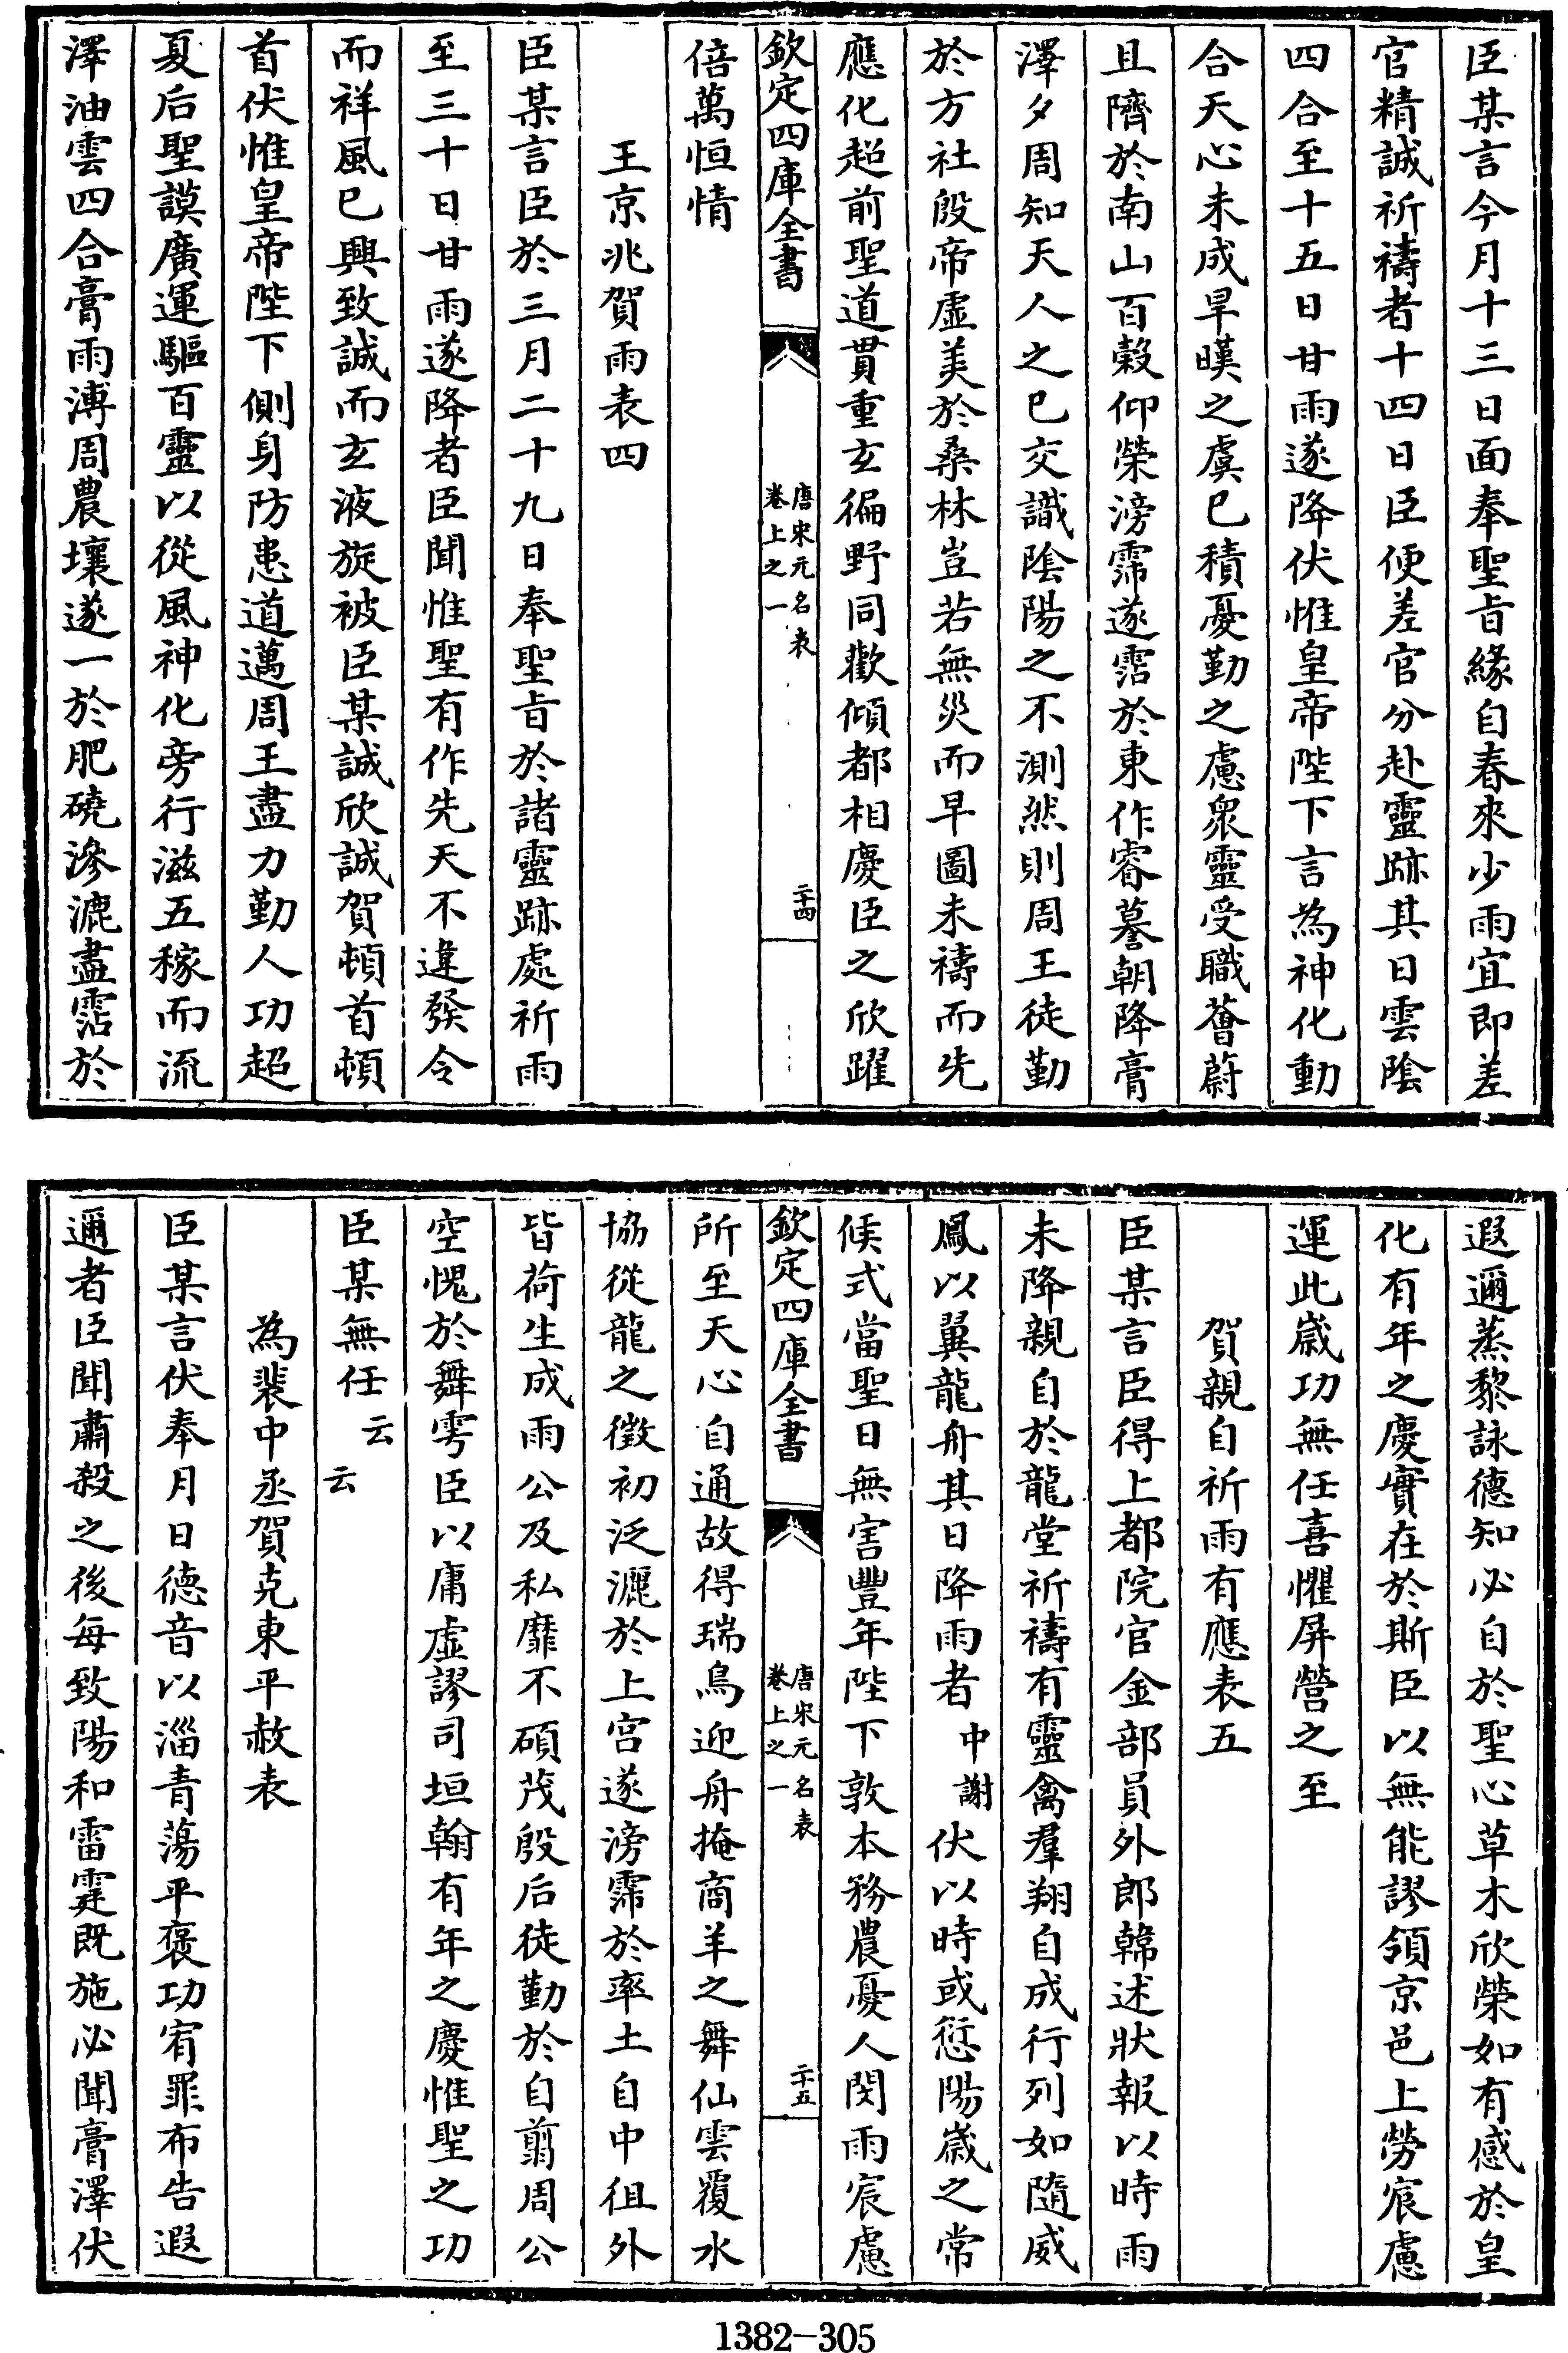 臣某言今月十三日面奉聖旨緣自春來少雨宜即差
官精誠祈禱者十四日臣便差官分赴靈跡其日雲陰
四合至十五日甘雨遂降伏惟皇帝陛下言為神化動
合天心未成旱暵之虞已積憂勤之慮衆靈受職薈蔚
且隮於南山百榖仰榮滂霈遂霑於東作睿謩朝降膏
澤夕周知天人之已交識陰陽之不測然則周王徒勤
於方社殷帝虛美於桑林豈若無災而早圖未禱而先
應化超前聖道貫重玄徧野同歡傾都相慶臣之欣躍
欽定四庫全書
唐宋元名表
卷上之一
二十四
倍萬恒情
王京兆賀雨表四
臣某言臣於三月二十九日奉聖旨於諸靈跡處祈雨
至三十日甘雨遂降者臣聞惟聖有作先天不違發令
而祥風已興致誠而玄液旋被臣某誠欣誠賀頓首頓
首伏惟皇帝陛下側身防患道邁周王盡力勤人功超
夏后聖謨廣運驅百靈以從風神化旁行滋五稼而流
澤油雲四合膏雨溥周農壤遂一於肥磽滲漉盡霑於
遐邇蒸黎詠德知必自於聖心草木欣榮如有感於皇
化有年之慶實在於斯臣以無能謬領京邑上勞宸慮
運此歲功無任喜懼屏營之至
賀親自祈雨有應表五
臣某言臣得上都院官金部員外郎韓述狀報以時雨
未降親自於龍堂祈禱有靈禽羣翔自成行列如隨威
鳳以翼龍舟其日降雨者中謝伏以時或愆陽歲之常
候式當聖日無害豐年陛下敦本務農憂人閔雨宸慮
欽定四庫全書
唐宋元名表
卷上之一
二十五
所至天心自通故得瑞鳥迎舟掩商羊之舞仙雲覆水
協從龍之徵初泛灑於上宫遂滂霈於率土自中徂外
皆荷生成雨公及私靡不碩茂殷后徒勤於自翦周公
空愧於舞雩臣以庸虛謬司垣翰有年之慶惟聖之功
臣某無任云云
為裴中丞賀克東平赦表
臣某言伏奉月日德音以淄青蕩平褒功宥罪布告遐
邇者臣聞肅殺之後每致陽和雷霆既施必聞膏澤伏
1382-305